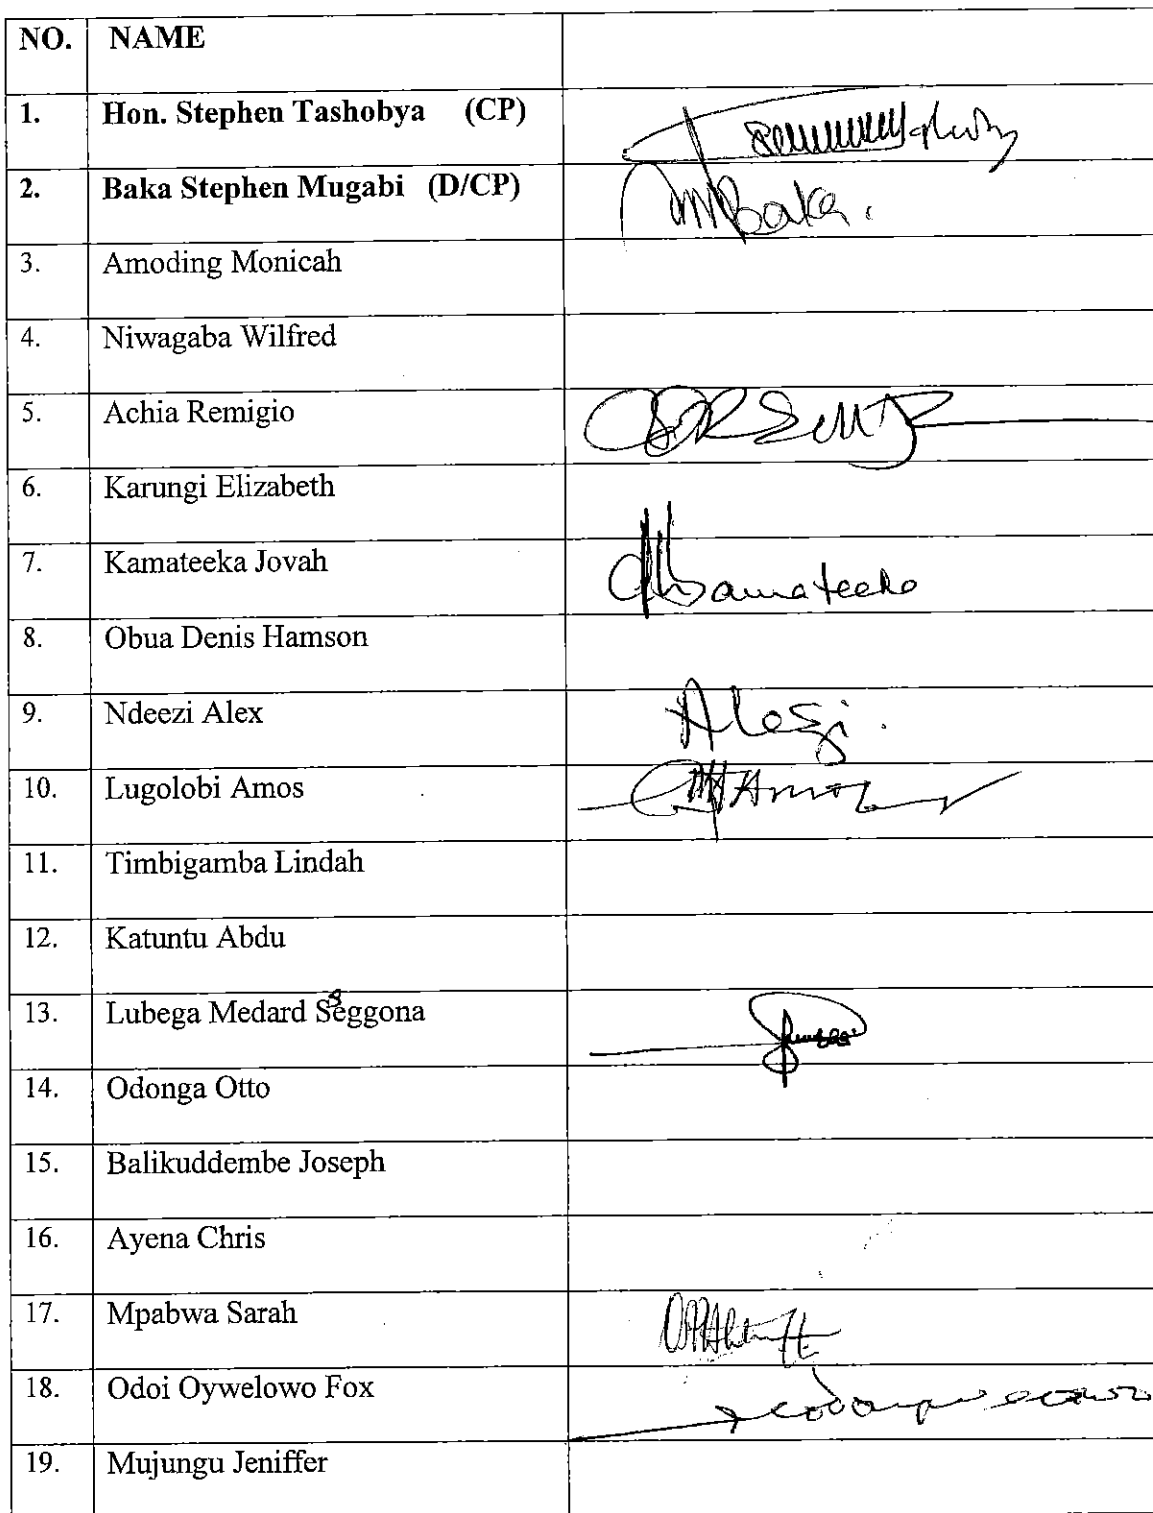 NO. NAME
1. Hon. Stephen Tashobya (CP)
2. Baka Stephen Mugabi (D/CP) Baka.
3. Amoding Monicah
4. Niwagaba Wilfred
5. Achia Remigio
6. Karungi Elizabeth
7. Kamateeka Jovah Kamateeka
8. Obua Denis Hamson
9. Ndeezi Alex
10. Lugolobi Amos
11. Timbigamba Lindah
12. Katuntu Abdu
13. Lubega Medard Seggona
14. Odonga Otto
15. Balikuddembe Joseph
16. Ayena Chris
17. Mpabwa Sarah
18. Odoi Oywelowo Fox
19. Mujungu Jeniffer